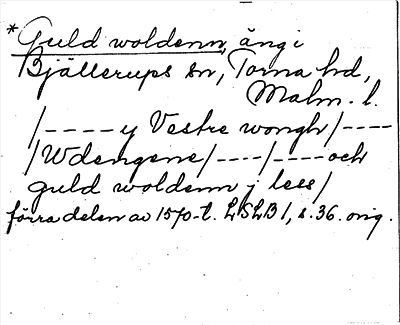 *Guld woldenn, äng i
Bjällerups sn, Torna hd,
Malm. l.
/---- y Vestre wongh/----
/Wdengene/----/----och
guld woldenn j lees/
förra delen av 1570-t. LSLB 1, s. 36. orig.